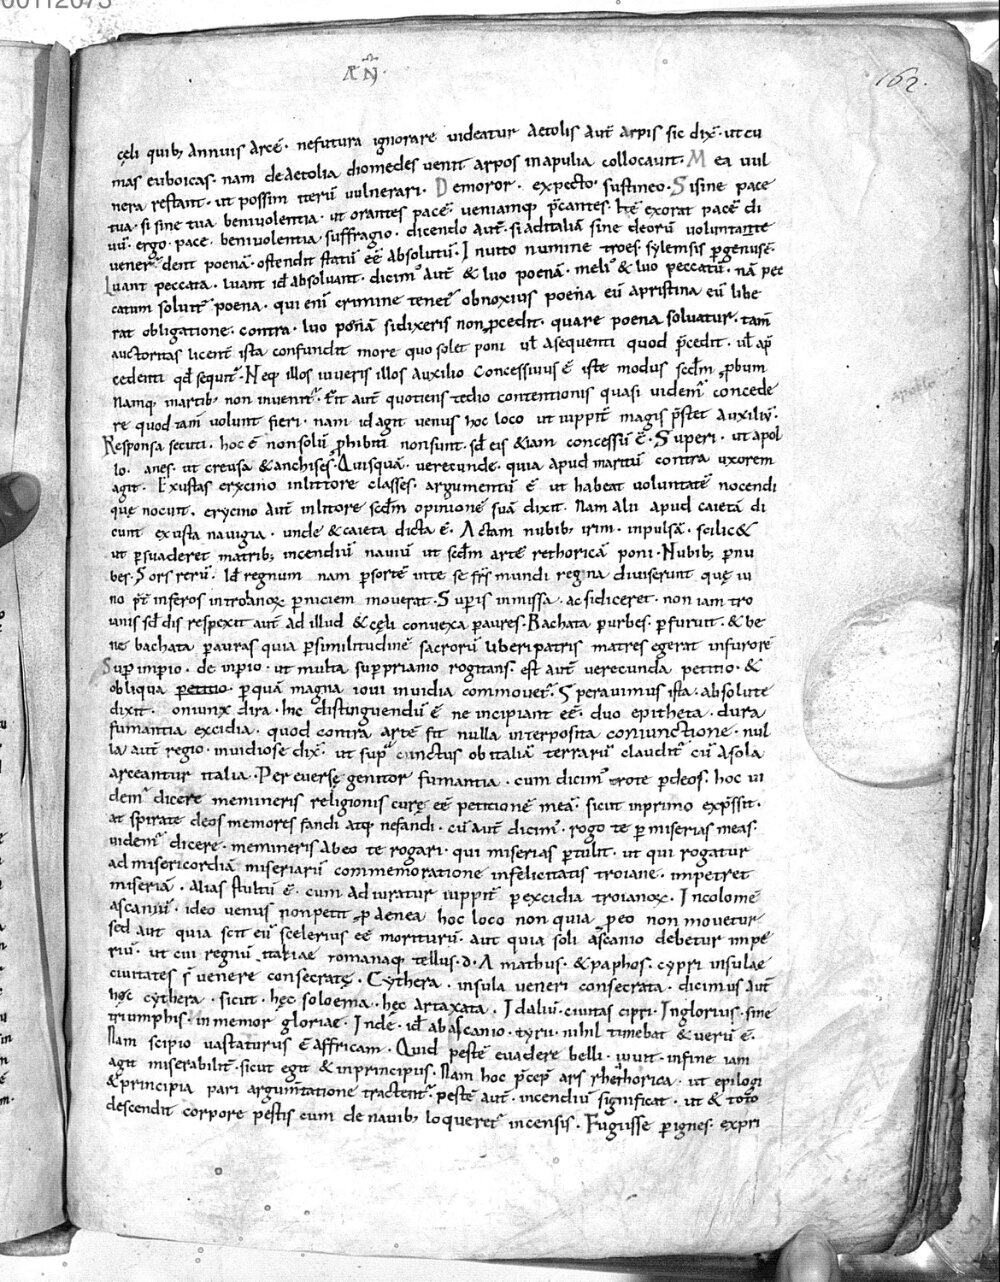 00112073
AÑ·
162.
apollo
cęli quib; annuis arcē · nefutura ignorare videatur aetolis aut̄ arpis sic dix̄ · ut cu
mas euboicas · nam de aetolia diomedes venit arpos in apulia collocavit · Mea vul
nera restant · ut possim iterū vulnerari · Demoror · expecto · sustineo · Si sine pace
tua · si sine tua benivolentia · ut orantes pacē veniamq; p̄cantes · exorat pacē di
vū · ergo · pace · benivolentia suffragio · dicendo aut̄ · si ad italiā sine deorū voluntante
dent poenā · ostendit statū eē absolutū · Invito numine
Luant peccata · luant id̄ absoluant · dicim̄ aut̄ & luo poenā · meli̓ & luo peccatū · nā pec
catum soluit̄ poena · qui enī crimine tenet̄ obnoxius poena eū a pristina eū libe
rat obligatione · contra · luo poenā si dixeris non p̄cedit · quare poena soluatur · tam̄
auctoritas licent̄ ista confundit more quo solet poni ul̄ a sequenti quod p̄cedit · ul̄ a p̄
cedenti qd̄ sequit̄ · Neq; illos iuveris illos auxilio · Concessivus ē iste modus scdm̄ probum
namq; martib; non invenit̄ · Fit aut̄ quotiens tedio contentionis quasi videm̄ concede
re quod tam̄ volunt fieri · nam id agit venus hoc loco ut iuppit̄ magis p̄stet auxiliū ·
Responsa secuti · hoc ē non solū phibiti non sunt · sd̄ eis &iam concessū ē · Superi · ut apol
lo · anes · ut creusa & anchises · Quisquā · verecunde · quia apud maritū contra uxorem
agit · Exustas erycino in littore classes · argumentū ē ut habeat voluntatē nocendi
quę nocuit · erycino aut̄ in littore scdm̄ opinionē suā dixit · Nam alii apud caietā di
cunt exusta navigia · unde & caieta dicta ē · Actam nubib; irim · inpulsā · scilic&
ut p̄suaderet matrib; incendiū naviū ut scdm̄ artē rethoricā poni · Nubib; p̄ nu
bes · Sors rerū · Id̄ regnum nam p̄ sortē inte se frs̄ mundi regna diviserunt quę iu
no p̄t inferos in troianox p̄niciem moverat · Sup̄is inmissa · ac si diceret · non iam tro
unis sd̄ dis respexit aut̄ ad illud & cęli convexa p̄ aures · Bachata p̄ urbes · p̄ furuit · & be
ne bachata p̄ auras quia p̄ similitudinē sacrorū liberi patris matres egerat in furorē
Sup̄ imp̄io · de inp̄io · ut multa sup̄ priamo rogitans · est aut̄ verecunda petitio · &
obliqua petitio · p̄ quā magna iovi invidia commovet̄ · Speravimus ista · absolute
dixit · coniunx dira · hic distinguendū ē ne incipiant eē · duo epitheta · dura
fumantia excidia · quod contra artē fit nulla interposita coniunctione · nul
la aut̄ regio · invidiose dix̄ · ut sup̄ cunctus ob italiā terrarū claudit̄ cū a sola
arceantur italia · Per eversę genitor fumantia · cum dicim̄ rote p̄ deos · hoc vi
dem̄ dicere memineris religionis curę eē petitionē meā · sicut in primo exp̄ssit ·
at spirate deos memores fandi atq; nefandi · cū aut̄ dicim̄ · rogo te p̄ miserias meas ·
videm̄ dicere · memineris ab eo te rogari · qui miserias p̄tulit · ut qui rogatur
ad misericordiā miseriarū commemoratione infelicitatis troiane · impetret
miseriā · alias stultū ē · cum adiuratur iuppit̄ p̄ excidia troianox · Incolomē
ascaniū · ideo venus non petit p̄ aenea hoc loco non quia p̄ eo non movetur
sed aut quia scit eū scelerius eē moriturū · aut quia soli ascanio debetur impe
riū · ut cui regnū italiae romanaq; tellus · d · Amathus · & paphos · cypri insulae
civitates s̄ venere consecratę · Cythera · insula veneri consecrata · dicimus aut̄
hęc cythera · sicut · hęc soloema · hęc artaxata · Idaliū · civitas cipri · Inglorius · sine
triumphis · inmemor gloriae · Inde · id̄ ab ascanio · tyrii · nihil timebat & verū ē ·
Nam scipio vastaturus ē affricam · Quid pestē evadere belli · iuvit · in fine iam
agit miserabilit̄ · sicut egit & in principus · Nam hoc p̄cep̄ ars rhethorica · ut epilogi
& principia pari argum̄tatione tractent̄ · pestē aut̄ · incendiū significat · ut & toto
descendit corpore pestis cum de navib; loqueret̄ incensis · Fugisse p̄ ignes · expri